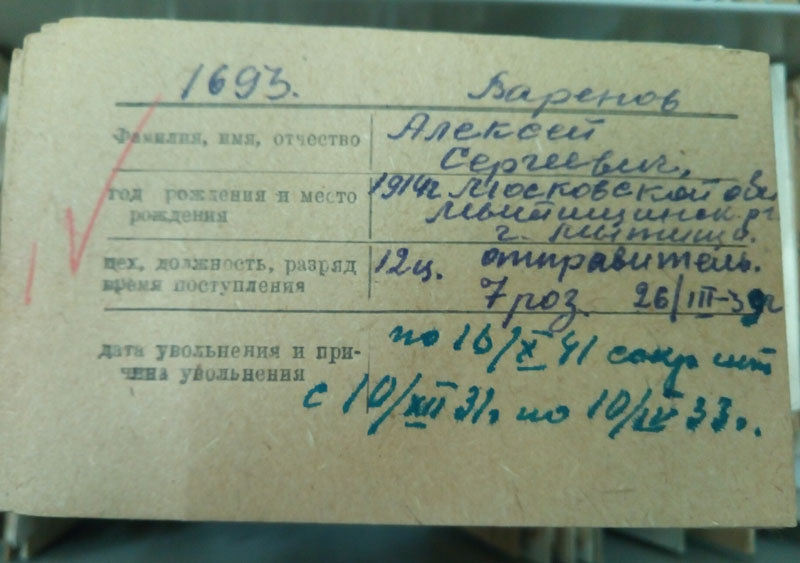 1693. Варенов
Фамилия, имя, отчество Алексей
Сергеевич,
год рождения и место 1914г Московской обл
рождения Мытищинск. р-г
г. Мытищи.
цех, должность, разряд 12ц. отправитель.
время поступления 7 роз. 26/III-39г
по 16/X 41 сокр шт
дата увольнения и при-
чина увольнения
с 10/XII 31г по 10/IV 33г.